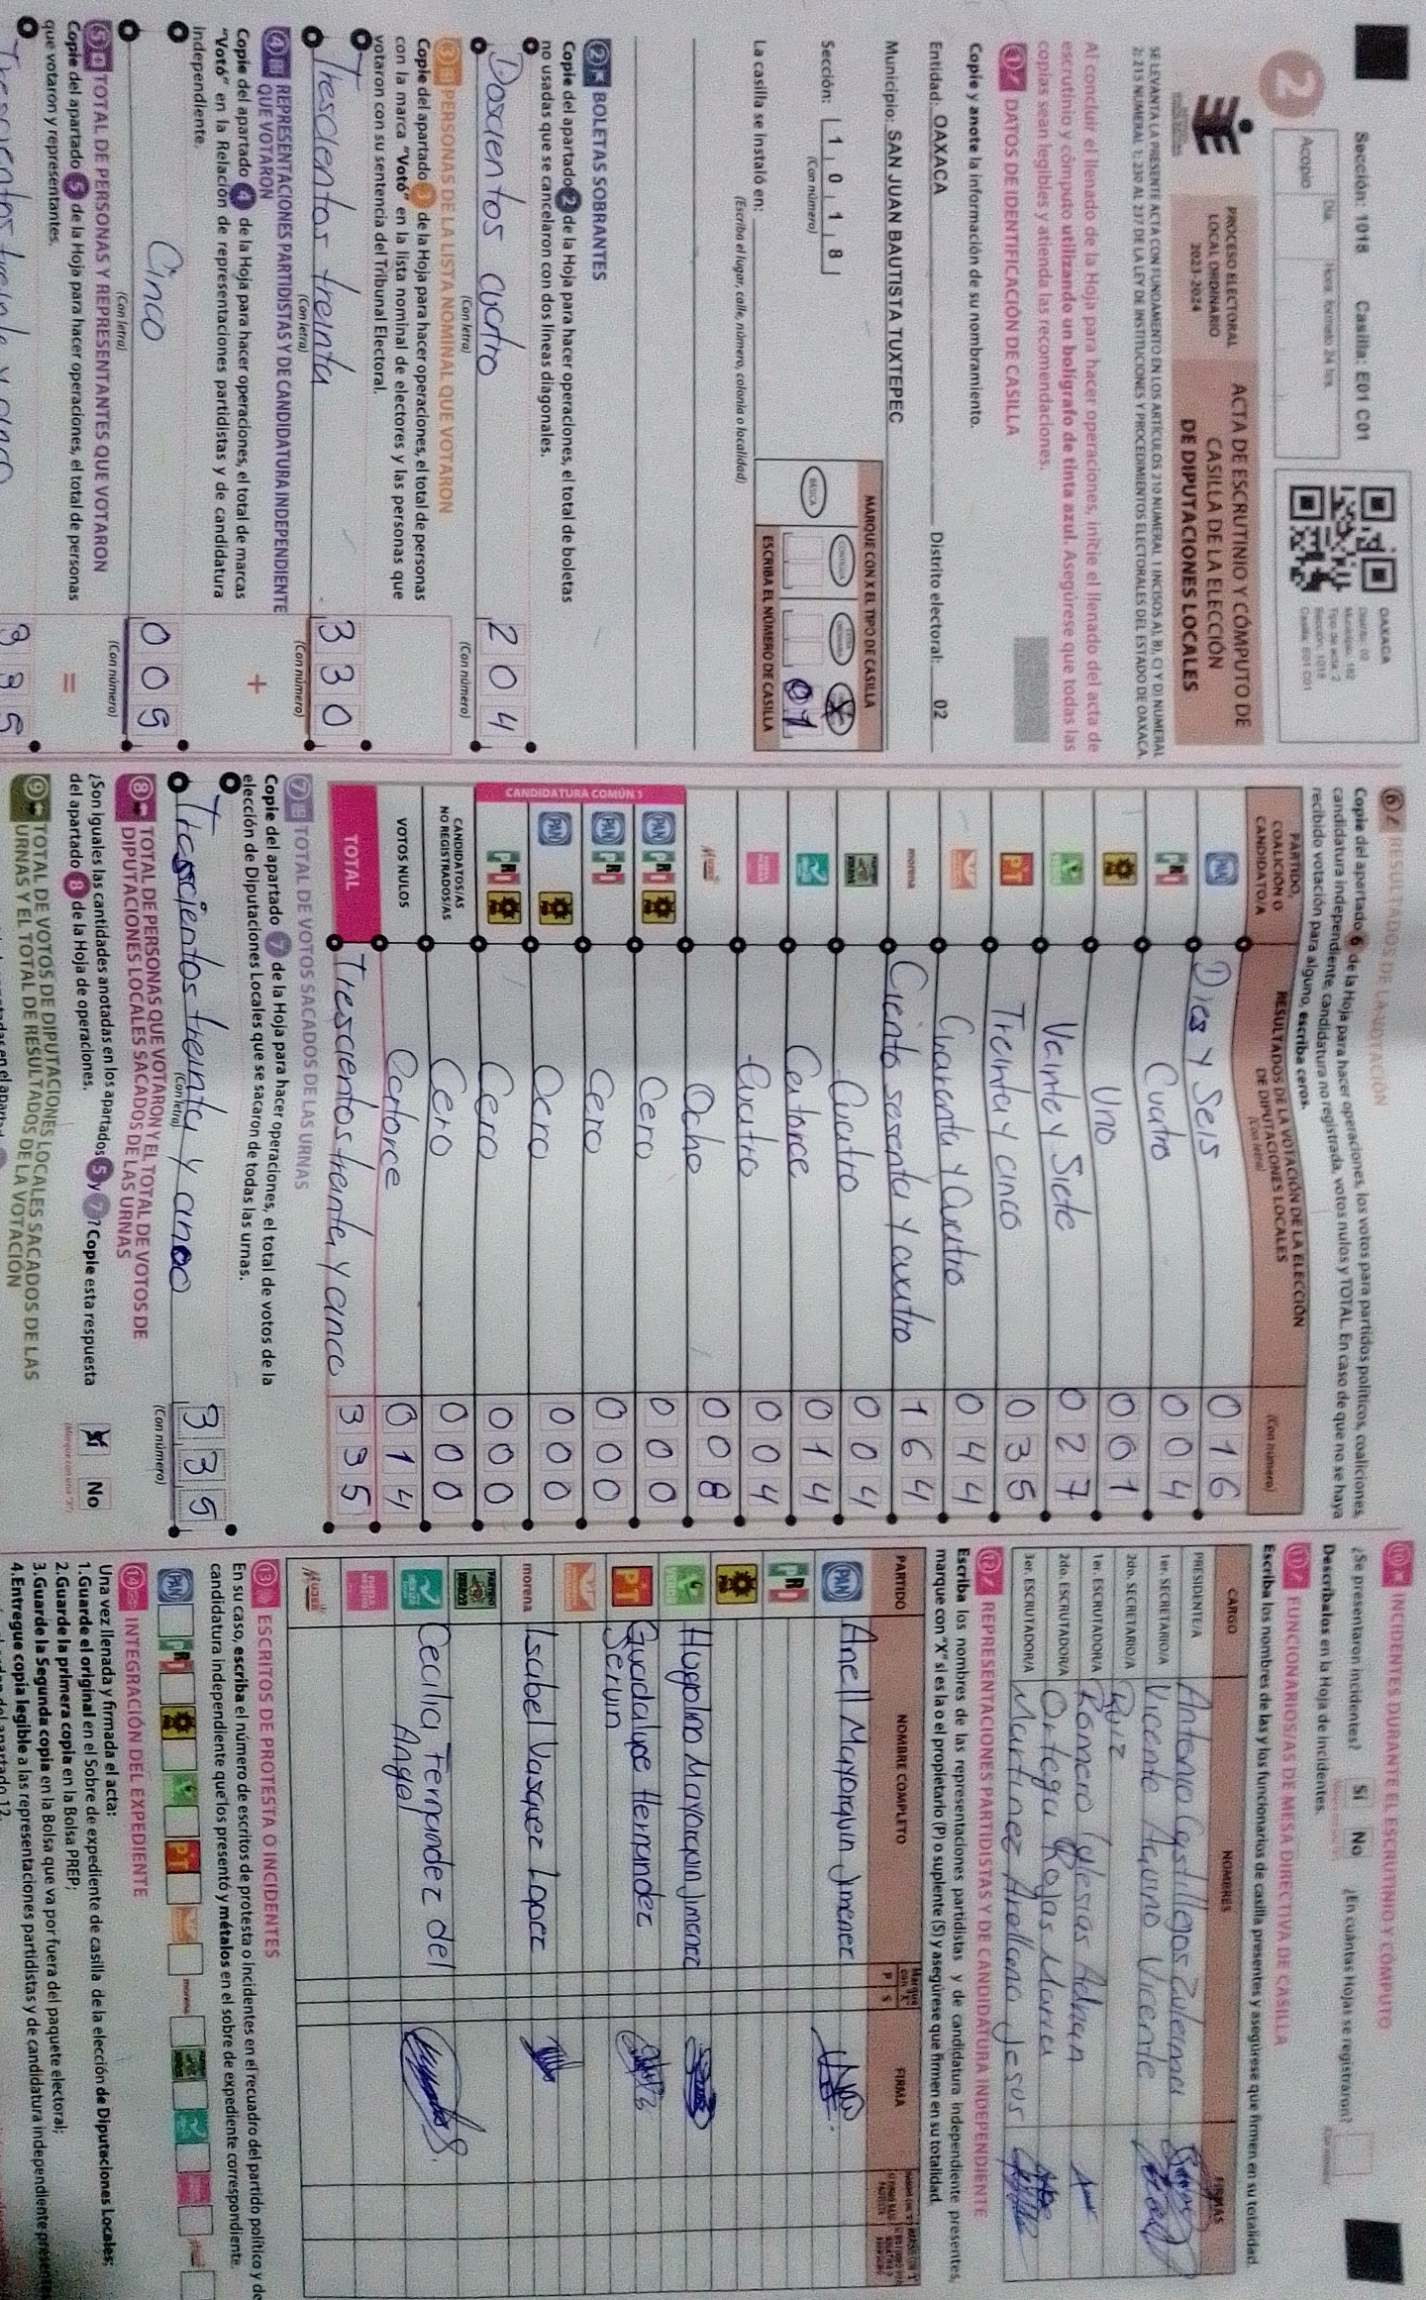 Sección: 1018 Casilla: E01 C01
2
Acopio
Día
Hora formato 24 hrs.
OAXACA
Distrito: 02
Municipio: 182
Tipo de acta: 2
Sección: 1018
Casilla: E01 C01
PROCESO ELECTORAL
LOCAL ORDINARIO
2023-2024
ACTA DE ESCRUTINIO Y CÓMPUTO DE
CASILLA DE LA ELECCIÓN
DE DIPUTACIONES LOCALES
SE LEVANTA LA PRESENTE ACTA CON FUNDAMENTO EN LOS ARTÍCULOS 210 NUMERAL 1 INCISOS A), B), C) Y D) NUMERAL
2; 215 NUMERAL 1; 230 AL 237 DE LA LEY DE INSTITUCIONES Y PROCEDIMIENTOS ELECTORALES DEL ESTADO DE OAXACA.
Al concluir el llenado de la Hoja para hacer operaciones, inicie el llenado del acta de
escrutinio y cómputo utilizando un bolígrafo de tinta azul. Asegúrese que todas las
copias sean legibles y atienda las recomendaciones.
1 DATOS DE IDENTIFICACIÓN DE CASILLA
Copie y anote la información de su nombramiento.
Entidad: OAXACA Distrito electoral: 02
Municipio: SAN JUAN BAUTISTA TUXTEPEC
Sección: 1 0 1 8
(Con número)
MARQUE CON X EL TIPO DE CASILLA
BÁSICA
X
01
ESCRIBA EL NÚMERO DE CASILLA
La casilla se instaló en:
(Escriba el lugar, calle, número, colonia o localidad)
2 BOLETAS SOBRANTES
Copie del apartado 2 de la Hoja para hacer operaciones, el total de boletas
no usadas que se cancelaron con dos líneas diagonales.
Doscientos cuatro 204
(Con letra) (Con número)
3 PERSONAS DE LA LISTA NOMINAL QUE VOTARON
Copie del apartado 3 de la Hoja para hacer operaciones, el total de personas
con la marca "Votó" en la lista nominal de electores y las personas que
votaron con su sentencia del Tribunal Electoral.
Trescientos treinta 330
(Con letra) (Con número)
4 REPRESENTACIONES PARTIDISTAS Y DE CANDIDATURA INDEPENDIENTE
QUE VOTARON
Copie del apartado 4 de la Hoja para hacer operaciones, el total de marcas
"Votó" en la Relación de representaciones partidistas y de candidatura
independiente.
+
Cinco 005
(Con letra) (Con número)
5 TOTAL DE PERSONAS Y REPRESENTANTES QUE VOTARON
Copie del apartado 5 de la Hoja para hacer operaciones, el total de personas
que votaron y representantes.
=
Trescientos treinta y cinco 335
6 RESULTADOS DE LA VOTACIÓN
Copie del apartado 6 de la Hoja para hacer operaciones, los votos para partidos políticos, coaliciones,
candidatura independiente, candidatura no registrada, votos nulos y TOTAL. En caso de que no se haya
recibido votación para alguno, escriba ceros.
PARTIDO,
COALICIÓN O
CANDIDATO/A
RESULTADOS DE LA VOTACIÓN DE LA ELECCIÓN
DE DIPUTACIONES LOCALES
(Con letra)
(Con número)
PAN Dies y Seis 016
PRI Cuatro 004
PRD Uno 001
VERDE Veinte y Siete 027
PT Treinta y cinco 035
Cuarenta y Cuatro 044
morena Ciento sesenta y cuatro 164
Cuatro 004
Catorce 014
Cuatro 004
MUJER Ocho 008
CANDIDATURA COMÚN 1
PAN PRI PRD Cero 000
PAN PRI Cero 000
PAN PRD Cero 000
PRI PRD Cero 000
CANDIDATOS/AS
NO REGISTRADOS/AS Cero 000
VOTOS NULOS Catorce 014
TOTAL Trescientos treinta y cinco 335
7 TOTAL DE VOTOS SACADOS DE LAS URNAS
Copie del apartado 7 de la Hoja para hacer operaciones, el total de votos de la
elección de Diputaciones Locales que se sacaron de todas las urnas.
Trascientos treinta y cinco 335
(Con letra) (Con número)
8 TOTAL DE PERSONAS QUE VOTARON Y EL TOTAL DE VOTOS DE
DIPUTACIONES LOCALES SACADOS DE LAS URNAS
¿Son iguales las cantidades anotadas en los apartados 5 y 7? Copie esta respuesta
del apartado 8 de la Hoja de operaciones.
Sí No
(Marque con una "X")
9 TOTAL DE VOTOS DE DIPUTACIONES LOCALES SACADOS DE LAS
URNAS Y EL TOTAL DE RESULTADOS DE LA VOTACIÓN
10 INCIDENTES DURANTE EL ESCRUTINIO Y CÓMPUTO
¿Se presentaron incidentes? Sí No ¿En cuántas Hojas se registraron?
Descríbalos en la Hoja de incidentes.
11 FUNCIONARIOS/AS DE MESA DIRECTIVA DE CASILLA
Escriba los nombres de las y los funcionarios de casilla presentes y asegúrese que firmen en su totalidad.
CARGO NOMBRES FIRMAS
PRESIDENTE/A Antonio Castillegos Zulema
1er. SECRETARIO/A Vicente Aquino Vicente
2do. SECRETARIO/A Ruiz
1er. ESCRUTADOR/A Romero Iglesias Adrian
2do. ESCRUTADOR/A Ortega Rojas Maria
3er. ESCRUTADOR/A Martinez Arellano Jesus
12 REPRESENTACIONES PARTIDISTAS Y DE CANDIDATURA INDEPENDIENTE
Escriba los nombres de las representaciones partidistas y de candidatura independiente presentes,
marque con "X" si es la o el propietario (P) o suplente (S) y asegúrese que firmen en su totalidad.
PARTIDO NOMBRE COMPLETO Marque con "X" P S FIRMA
PAN Anell Mayorquin Jimenez
PRI
PRD
VERDE Hugolino Mayorquin Jimenez
PT Guadalupe Hernandez
Servin
morena Isabel Vasquez Lopez
Cecilia Fernandez del
Angel
MUJER
13 ESCRITOS DE PROTESTA O INCIDENTES
En su caso, escriba el número de escritos de protesta o incidentes en el recuadro del partido político y de
candidatura independiente que los presentó y métalos en el sobre de expediente correspondiente.
PAN PRI PRD VERDE PT morena
14 INTEGRACIÓN DEL EXPEDIENTE
Una vez llenada y firmada el acta:
1. Guarde el original en el Sobre de expediente de casilla de la elección de Diputaciones Locales;
2. Guarde la primera copia en la Bolsa PREP;
3. Guarde la Segunda copia en la Bolsa que va por fuera del paquete electoral;
4. Entregue copia legible a las representaciones partidistas y de candidatura independiente presentes